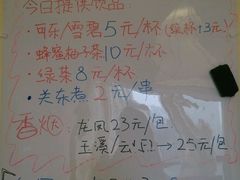 今日提供饮品:
·可乐/雪碧5元/杯(续杯+3元)
·蜂蜜柚子茶10元/杯
·绿茶8元/杯
·关东煮2元/串
香烟: 龙凤23元/包
玉溪/云烟→25元/包